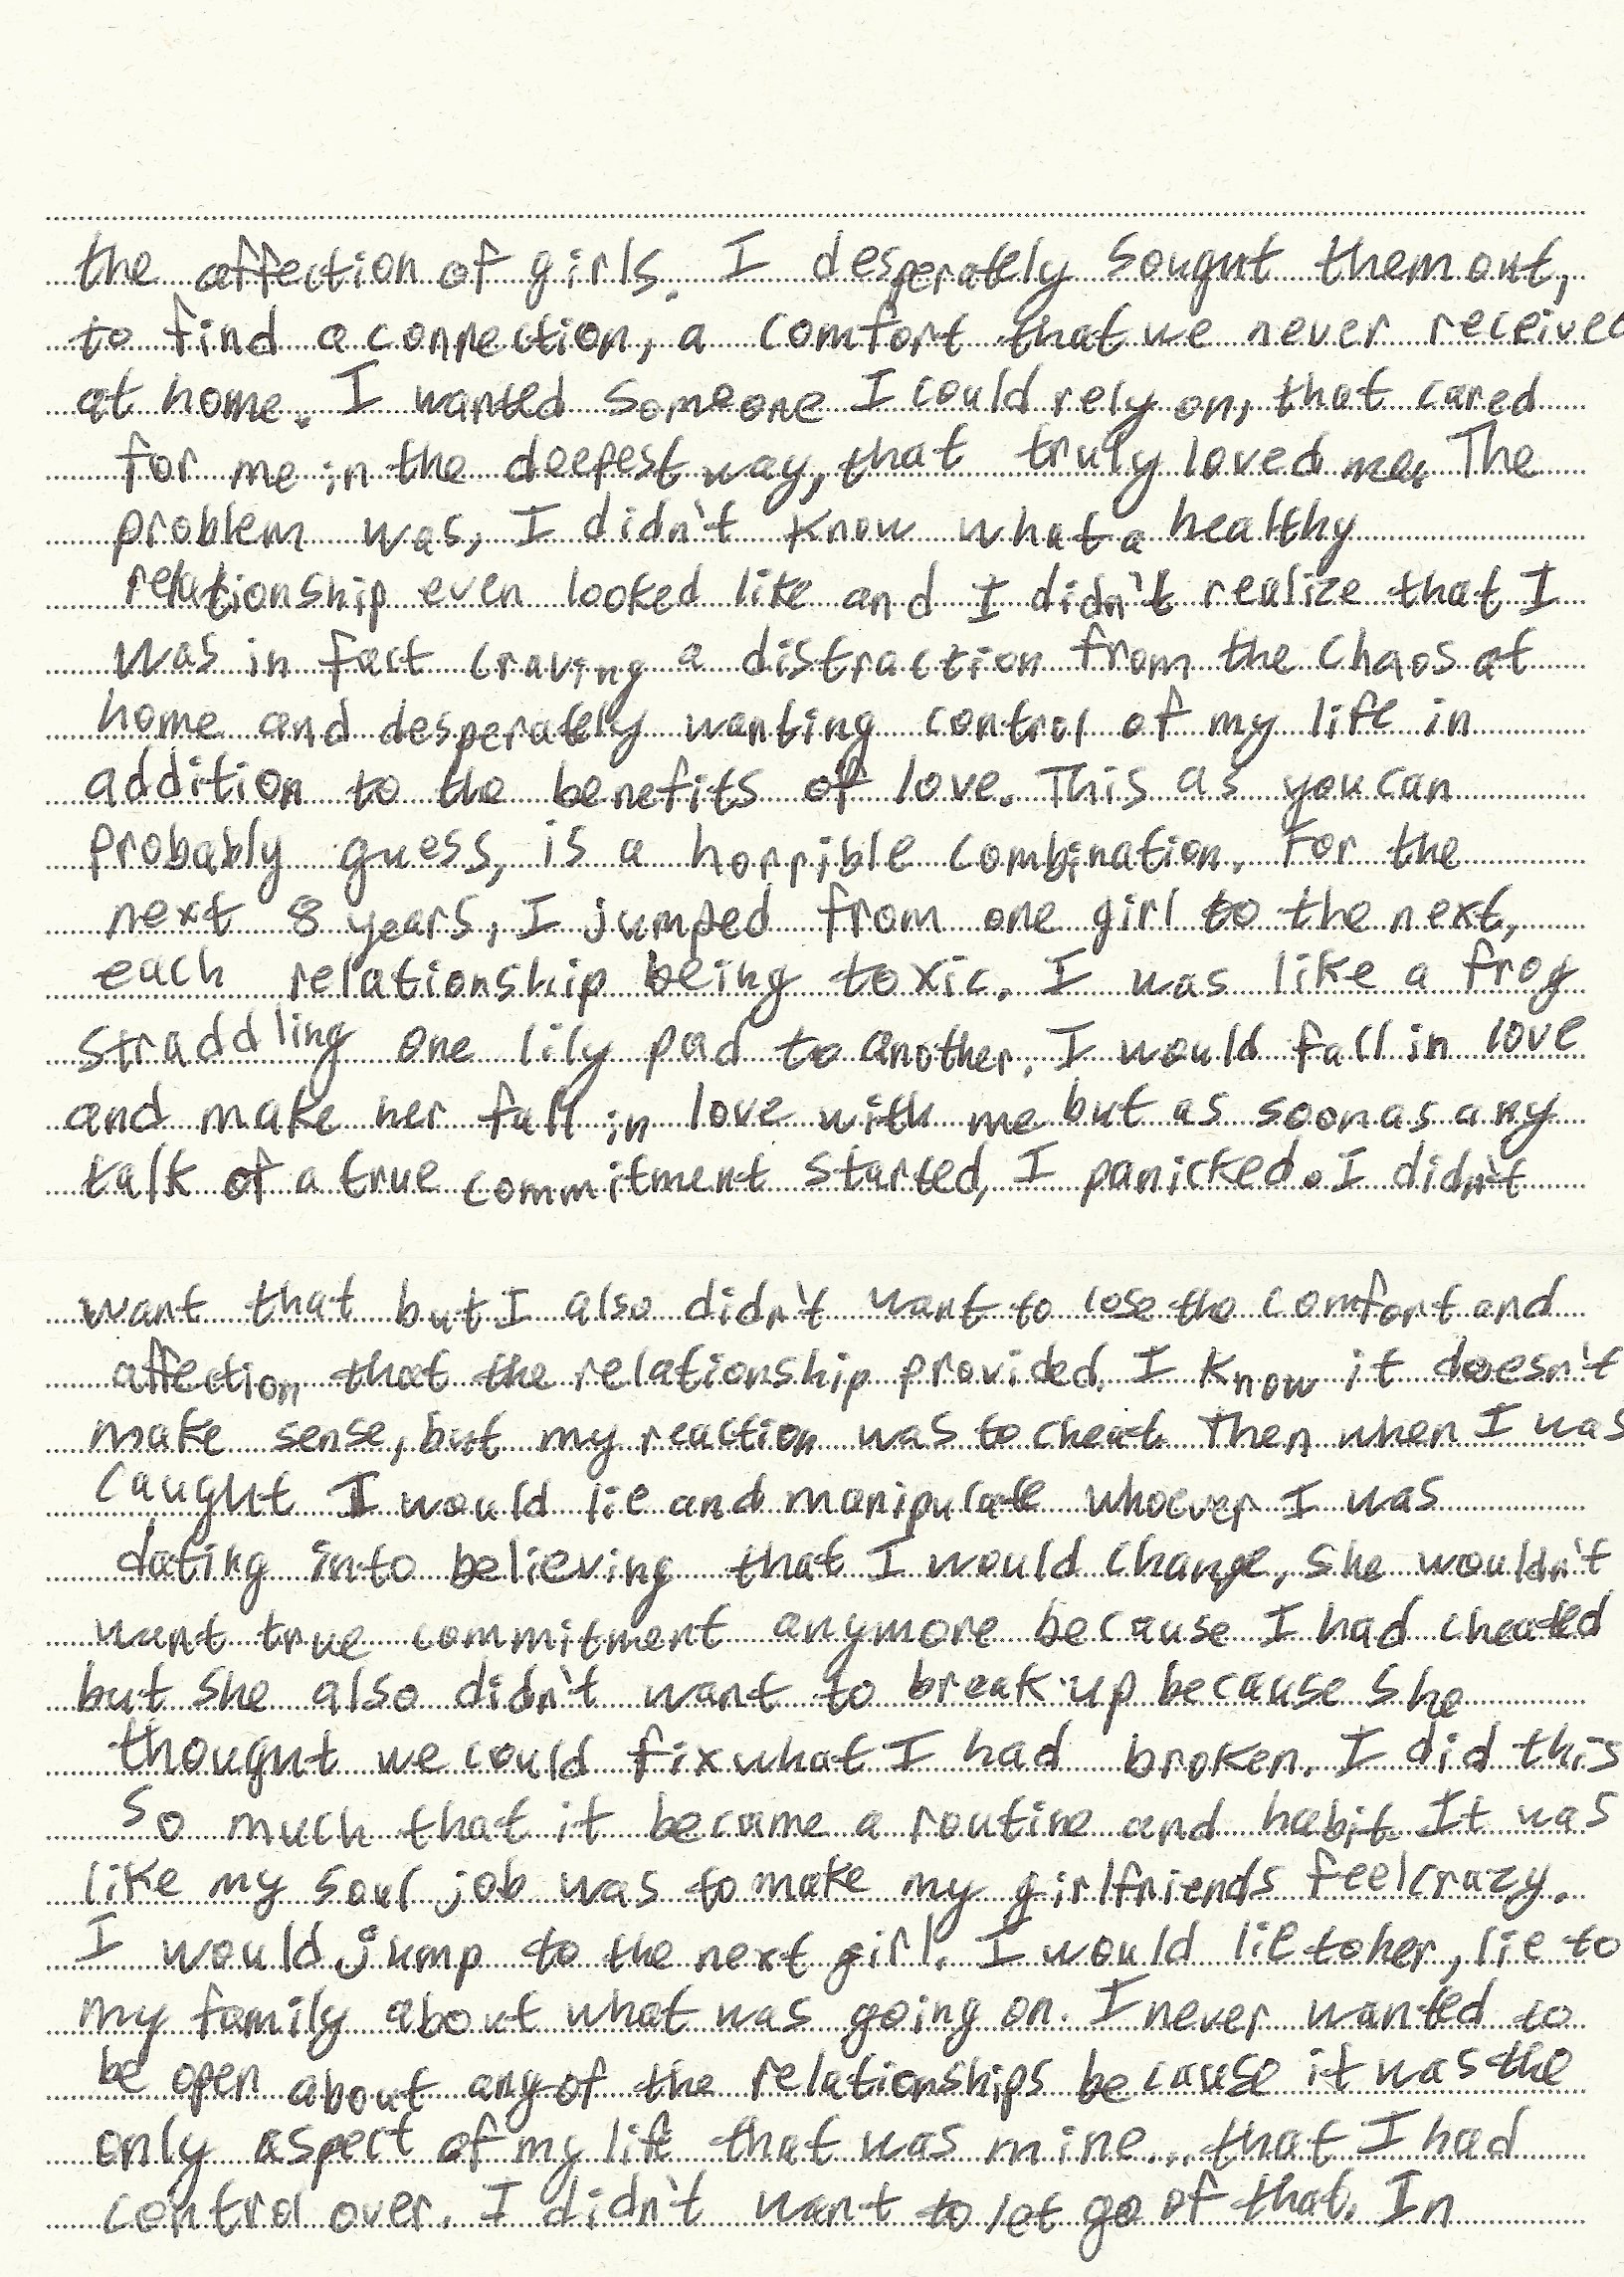 the affection of girls. I desperately sought them out,
to find a connection, a comfort that we never received
at home. I wanted someone I could rely on, that cared
for me in the deepest way, that truly loved me. The
problem was, I didn't know what a healthy
relationship even looked like and I didn't realize that I
was in fact craving a distraction from the chaos at
home and desperately wanting control of my life in
addition to the benefits of love. This as you can
probably guess, is a horrible combination. For the
next 8 years, I jumped from one girl to the next,
each relationship being toxic. I was like a frog
straddling one lily pad to another. I would fall in love
and make her fall in love with me but as soon as any
talk of a true commitment started, I panicked. I didn't
want that but I also didn't want to lose the comfort and
affection that the relationship provided. I know it doesn't
make sense, but my reaction was to cheat. Then when I was
caught I would lie and manipulate whoever I was
dating into believing that I would change, she wouldn't
want true commitment anymore because I had cheated
but she also didn't want to break up because she
thought we could fix what I had broken. I did this
so much that it became a routine and habit. It was
like my soul job was to make my girlfriends feel crazy.
I would jump to the next girl. I would lie to her, lie to
my family about what was going on. I never wanted to
be open about any of the relationships because it was the
only aspect of my life that was mine... that I had
control over. I didn't want to let go of that. In